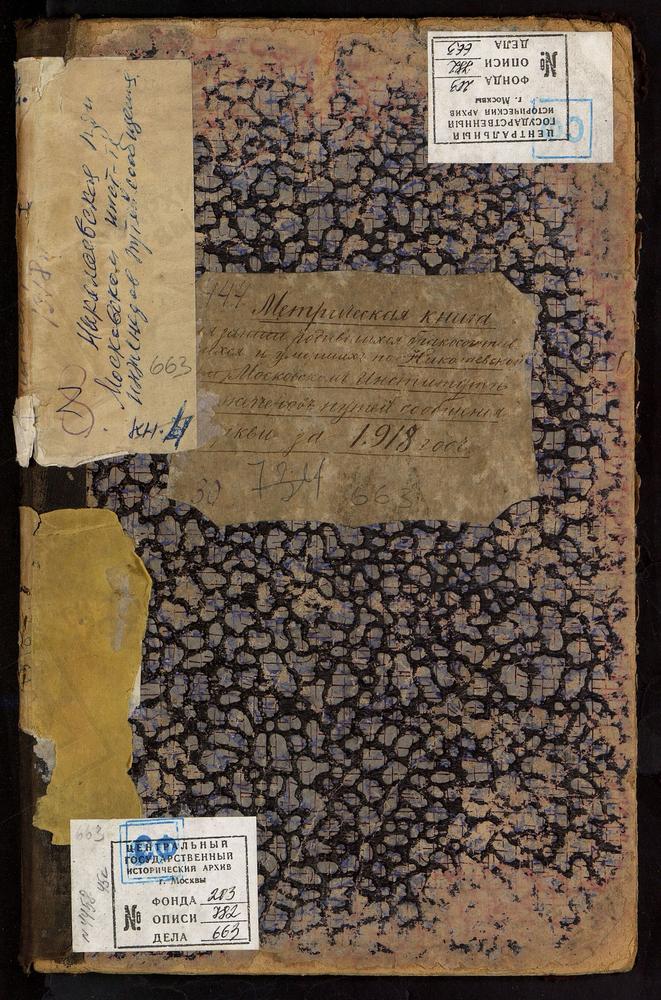 ЦЕНТРАЛЬНЫЙ
ГОСУДАРСТВЕННЫЙ
ИСТОРИЧЕСКИЙ АРХИВ
г. Москвы
ФОНДА 203
№ ОПИСИ 782
ДЕЛА 663
Николаевская при
Московском инст-те
инженеров путей сообщения
663
кн. 4
Метрическая книга
родившихся бракосочетав
шихся и умерших по Николаевской
Московскомъ Институтѣ
путей сообщения
за 1918 годъ
663
663
ЦЕНТРАЛЬНЫЙ
ГОСУДАРСТВЕННЫЙ
ИСТОРИЧЕСКИЙ АРХИВ
г. Москвы
ФОНДА 203
№ ОПИСИ 782
ДЕЛА 663